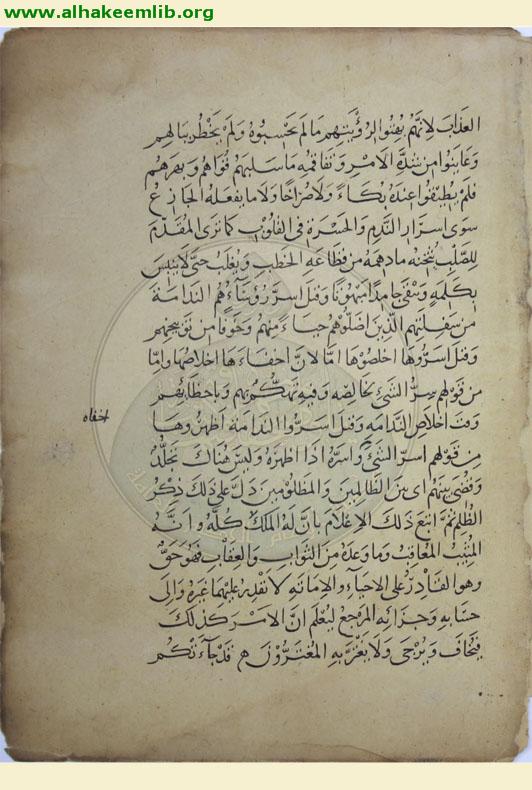 www.alhakeemlib.org
العذاب لانهم بهتوا لرؤيتهم ما لم يحتسبوه ولم يخطر ببالهم
وعاينوا من شدة الامر وتفاقمه ما سلبهم قواهم وبهرهم
فلم يطيقوا عنده بكاء ولا صراخا ولا ما يفعله الجازع
سوى اسرار الندم والحسرة في القلوب كما ترى المقدم
للصلب يثخنه ما دهمه من فظاعة الخطب ويغلب حتى لا ينبس
بكلمة ويبقى جامدا مبهوتا وقيل اسر رؤساءهم الندامة
من سفلتهم الذين اضلوهم حياء منهم وخوفا من توبيخهم
وقيل اسروها اخلصوها اما لان اخفاءها اخلاصها واما
من قولهم سر الشيء لخالصه وفيه تهكم بهم وباخطائهم
وقت اخلاص الندامة وقيل اسروا الندامة اظهروها
اخفاه
من قولهم اسر الشيء واسره اذا اظهره وليس هناك تجلد
وقضي بينهم اي بين الظالمين والمظلومين دل على ذلك ذكر
الظلم ثم اتبع ذلك الاعلام بان له الملك كله وانه
المثيب المعاقب وما وعده من الثواب والعقاب فهو حق
وهو القادر على الاحياء والاماتة لا يقدر عليهما غيره والى
حسابه وجزائه المرجع ليعلم ان الامر كذلك
فيخاف ويرجى ولا يغتر به المغترون قد جاءتكم